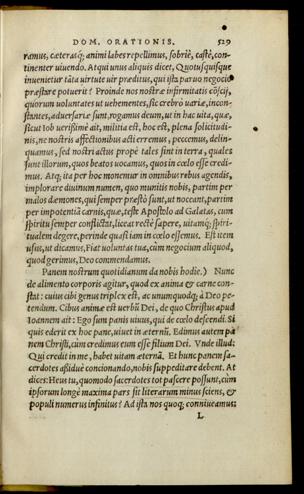 DOM. ORATIONIS. 529
ramus, cæteraq́; animi labes repellimus, sobriè, castè, con-
tinenter uiuendo. At qui unus aliquis dicet, Quotusquisque
inuenietur tãta uirtute uir præditus, qui ista paruo negocio
præstare potuerit? Proinde nos nostræ infirmitatis cõscij,
quorum uoluntates ut uehementes, sic crebrò uariæ, incon-
stantes, aduersariæ sunt, rogamus deum, ut in hac uita, quæ,
sicut Iob uerißimè ait, militia est, hoc est, plena solicitudi-
nis, ne nostris affectionibus acti erremus, peccemus, delin-
quamus, sed nostri actus propè tales sint in terra, quales
sunt illorum, quos beatos uocamus, quos in cœlo esse credi-
mus. Atq; ita per hoc monemur in omnibus rebus agendis,
implorare diuinum numen, quo munitis nobis, partim per
malos dæmones, qui semper præstò sunt, ut noceant, partim
per impotentiã carnis, quæ, teste Apostolo ad Galatas, cum
spiritu semper conflictat, liceat rectè sapere, uitamq́; spiri-
tualem degere, perinde quasi iam in cœlo essemus. Est item
usus, ut dicamus, Fiat uoluntas tua, cùm negocium aliquod,
quod gerimus, Deo commendamus.
Panem nostrum quotidianum da nobis hodie.) Nunc
de alimento corporis agitur, quod ex anima & carne con-
stat: cuius cibi genus triplex est, ac unumquodq; à Deo pe-
tendum. Cibus animæ est uerbũ Dei, de quo Christus apud
Ioannem ait: Ego sum panis uiuus, qui de cœlo descendi. Si
quis ederit ex hoc pane, uiuet in æternũ. Edimus autem pa
nem Christi, cùm credimus eum esse filium Dei. Vnde illud:
Qui credit in me, habet uitam æternã. Et hunc panem sa-
cerdotes aßiduè concionando, nobis suppeditare debent. At
dices: Heus tu, quomodo sacerdotes tot pascere possunt, cùm
ipsorum longè maxima pars sit literarum minus sciens, &
populi numerus infinitus? Ad ista nos quoq; conniueamus:
L